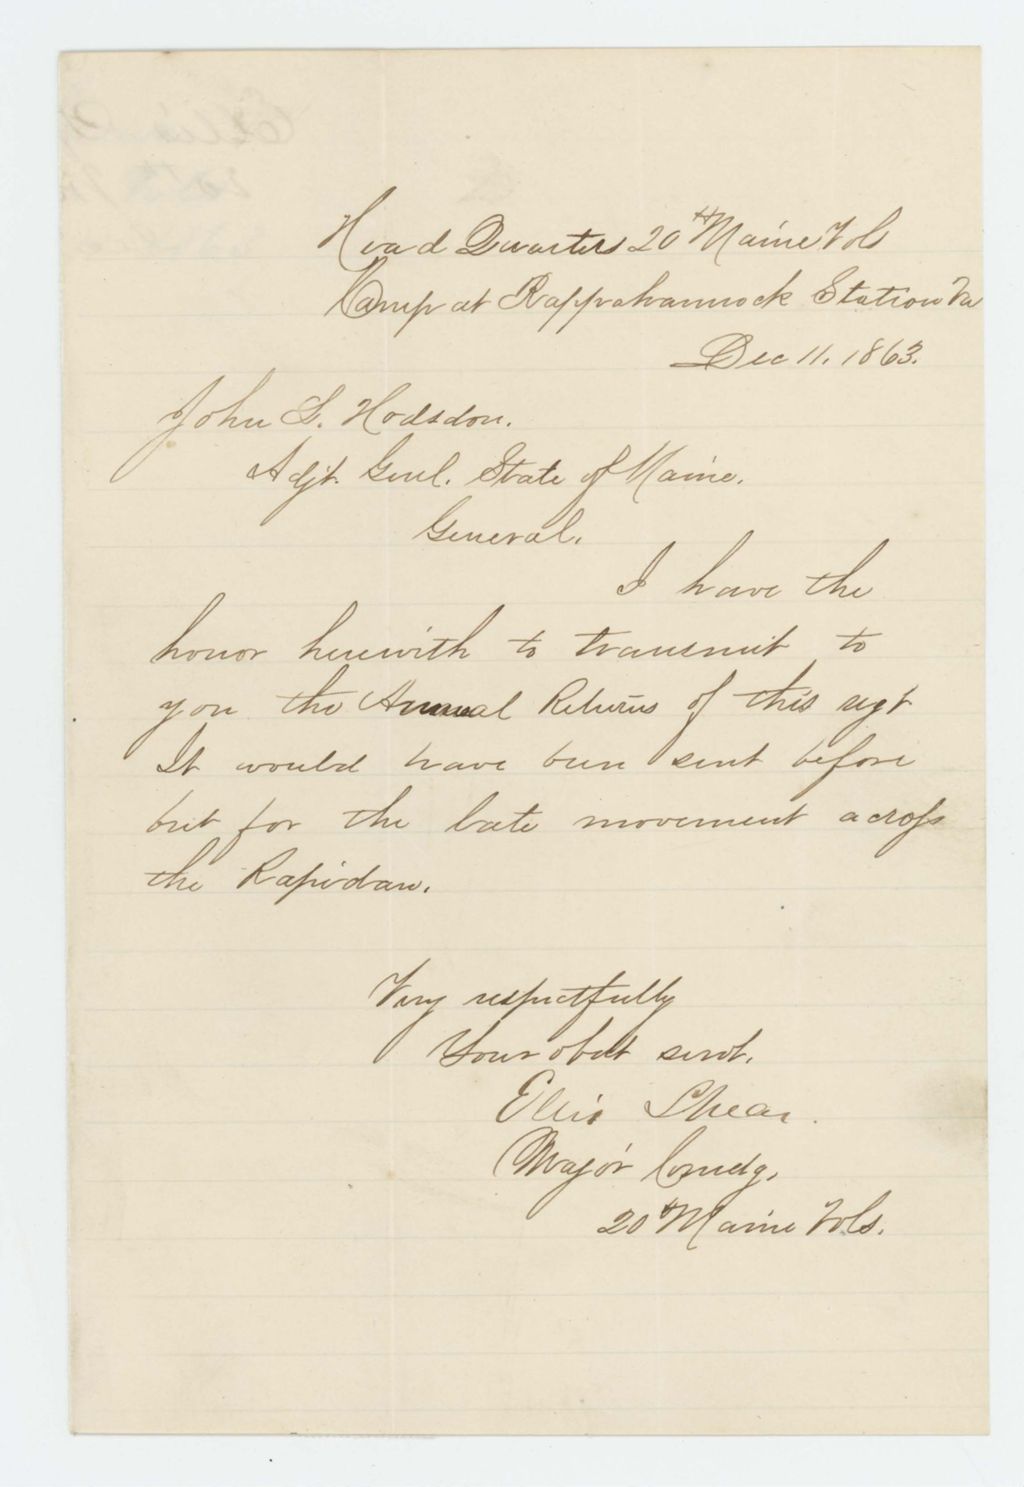 Head Quarters 20th Maine Vols
Camp at Rappahannock Station Va
Dec 11. 1863.
John L. Hodsdon.
Adjt. Genl. State of Maine.
General.
I have the
honor herewith to transmit to
you the Annual Returns of this regt
It would have been sent before
but for the late movement across
the Rapidan.
Very respectfully
Your obdt servt.
Ellis Spear.
Major Comdg.
20th Maine Vols.